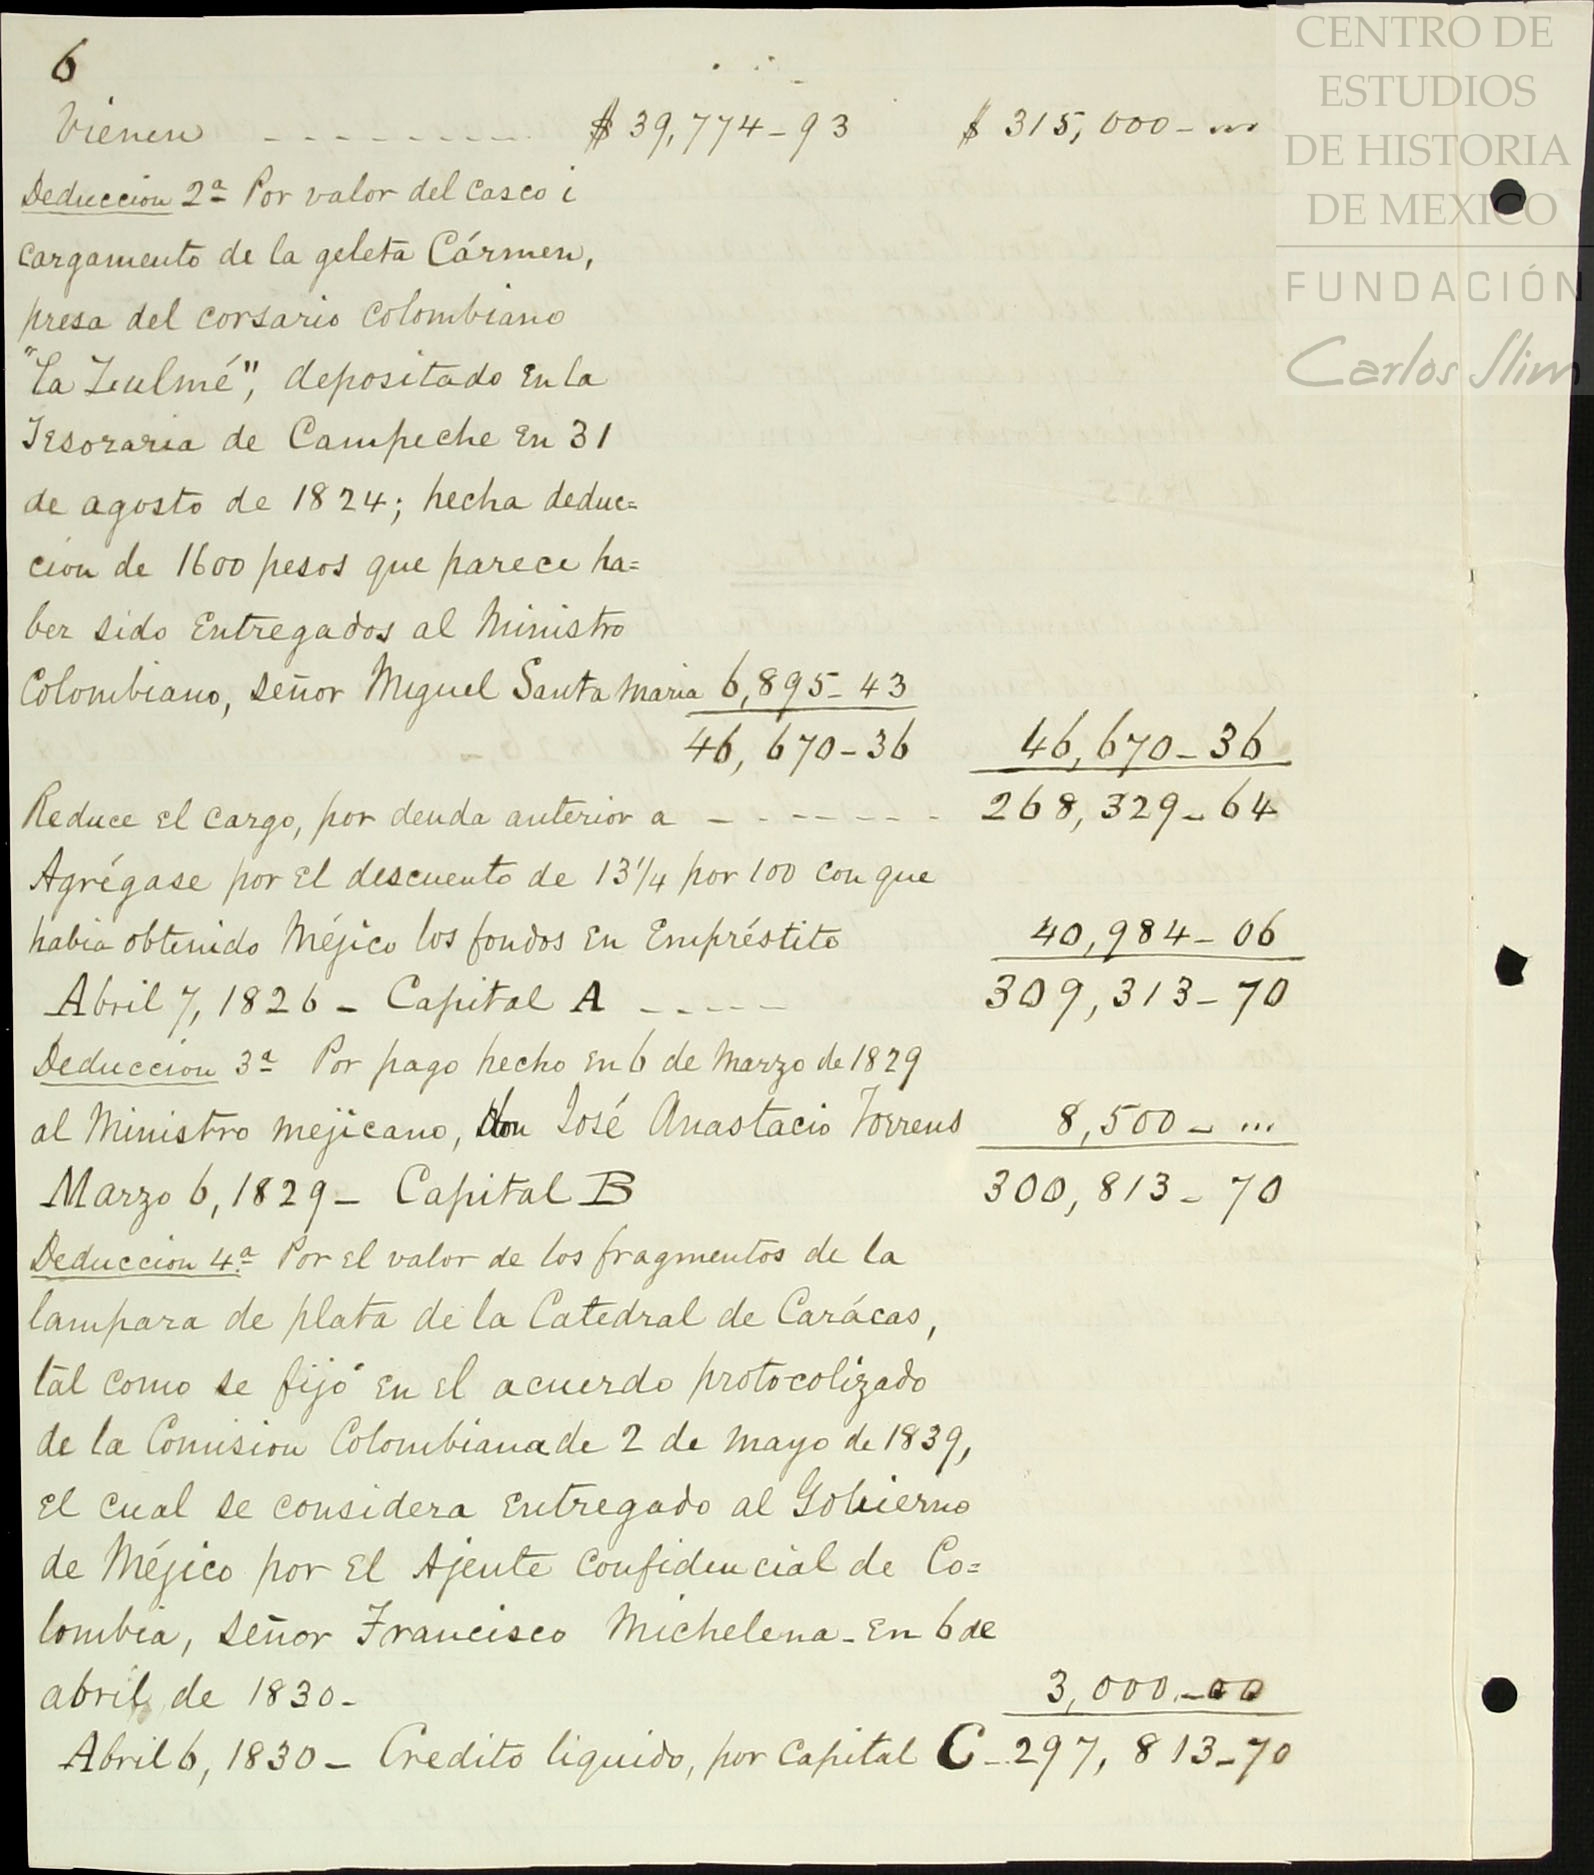 6
Vienen - - - - - - - - $ 39,774-93 $ 315,000-...
Deduccion 2ª Por valor del casco i
cargamento de la geleta Cármen,
presa del corsario Colombiano
"La Zulmé", depositado en la
Tesoraria de Campeche en 31
de agosto de 1824; hecha deduc=
cion de 1600 pesos que parece ha=
ber sido entregados al Ministro
Colombiano, señor Miguel Santa Maria 6,895-43
46,670-36 46,670-36
Reduce el cargo, por deuda anterior a - - - - - - - 268,329-64
Agrégase por el descuento de 13 1/4 por 100 con que
habia obtenido Méjico los fondos en Empréstito 40,984-06
Abril 7, 1826 - Capital A - - - - - 309,313-70
Deduccion 3ª Por pago hecho en 6 de Marzo de 1829
al Ministro mejicano, don José Anastacio Torrens 8,500-...
Marzo 6, 1829 - Capital B 300,813-70
Deduccion 4ª Por el valor de los fragmentos de la
lampara de plata de la Catedral de Carácas,
tal como se fijó en el acuerdo protocolizado
de la Comision Colombiana de 2 de mayo de 1839,
el cual se considera entregado al Gobierno
de Méjico por el Ajente confidencial de Co=
lombia, señor Francisco Michelena - en 6 de
abril de 1830 - 3,000-00
Abril 6, 1830 - Credito liquido, por capital C - 297,813-70
CENTRO DE
ESTUDIOS
DE HISTORIA
DE MEXICO
FUNDACIÓN
Carlos Slim